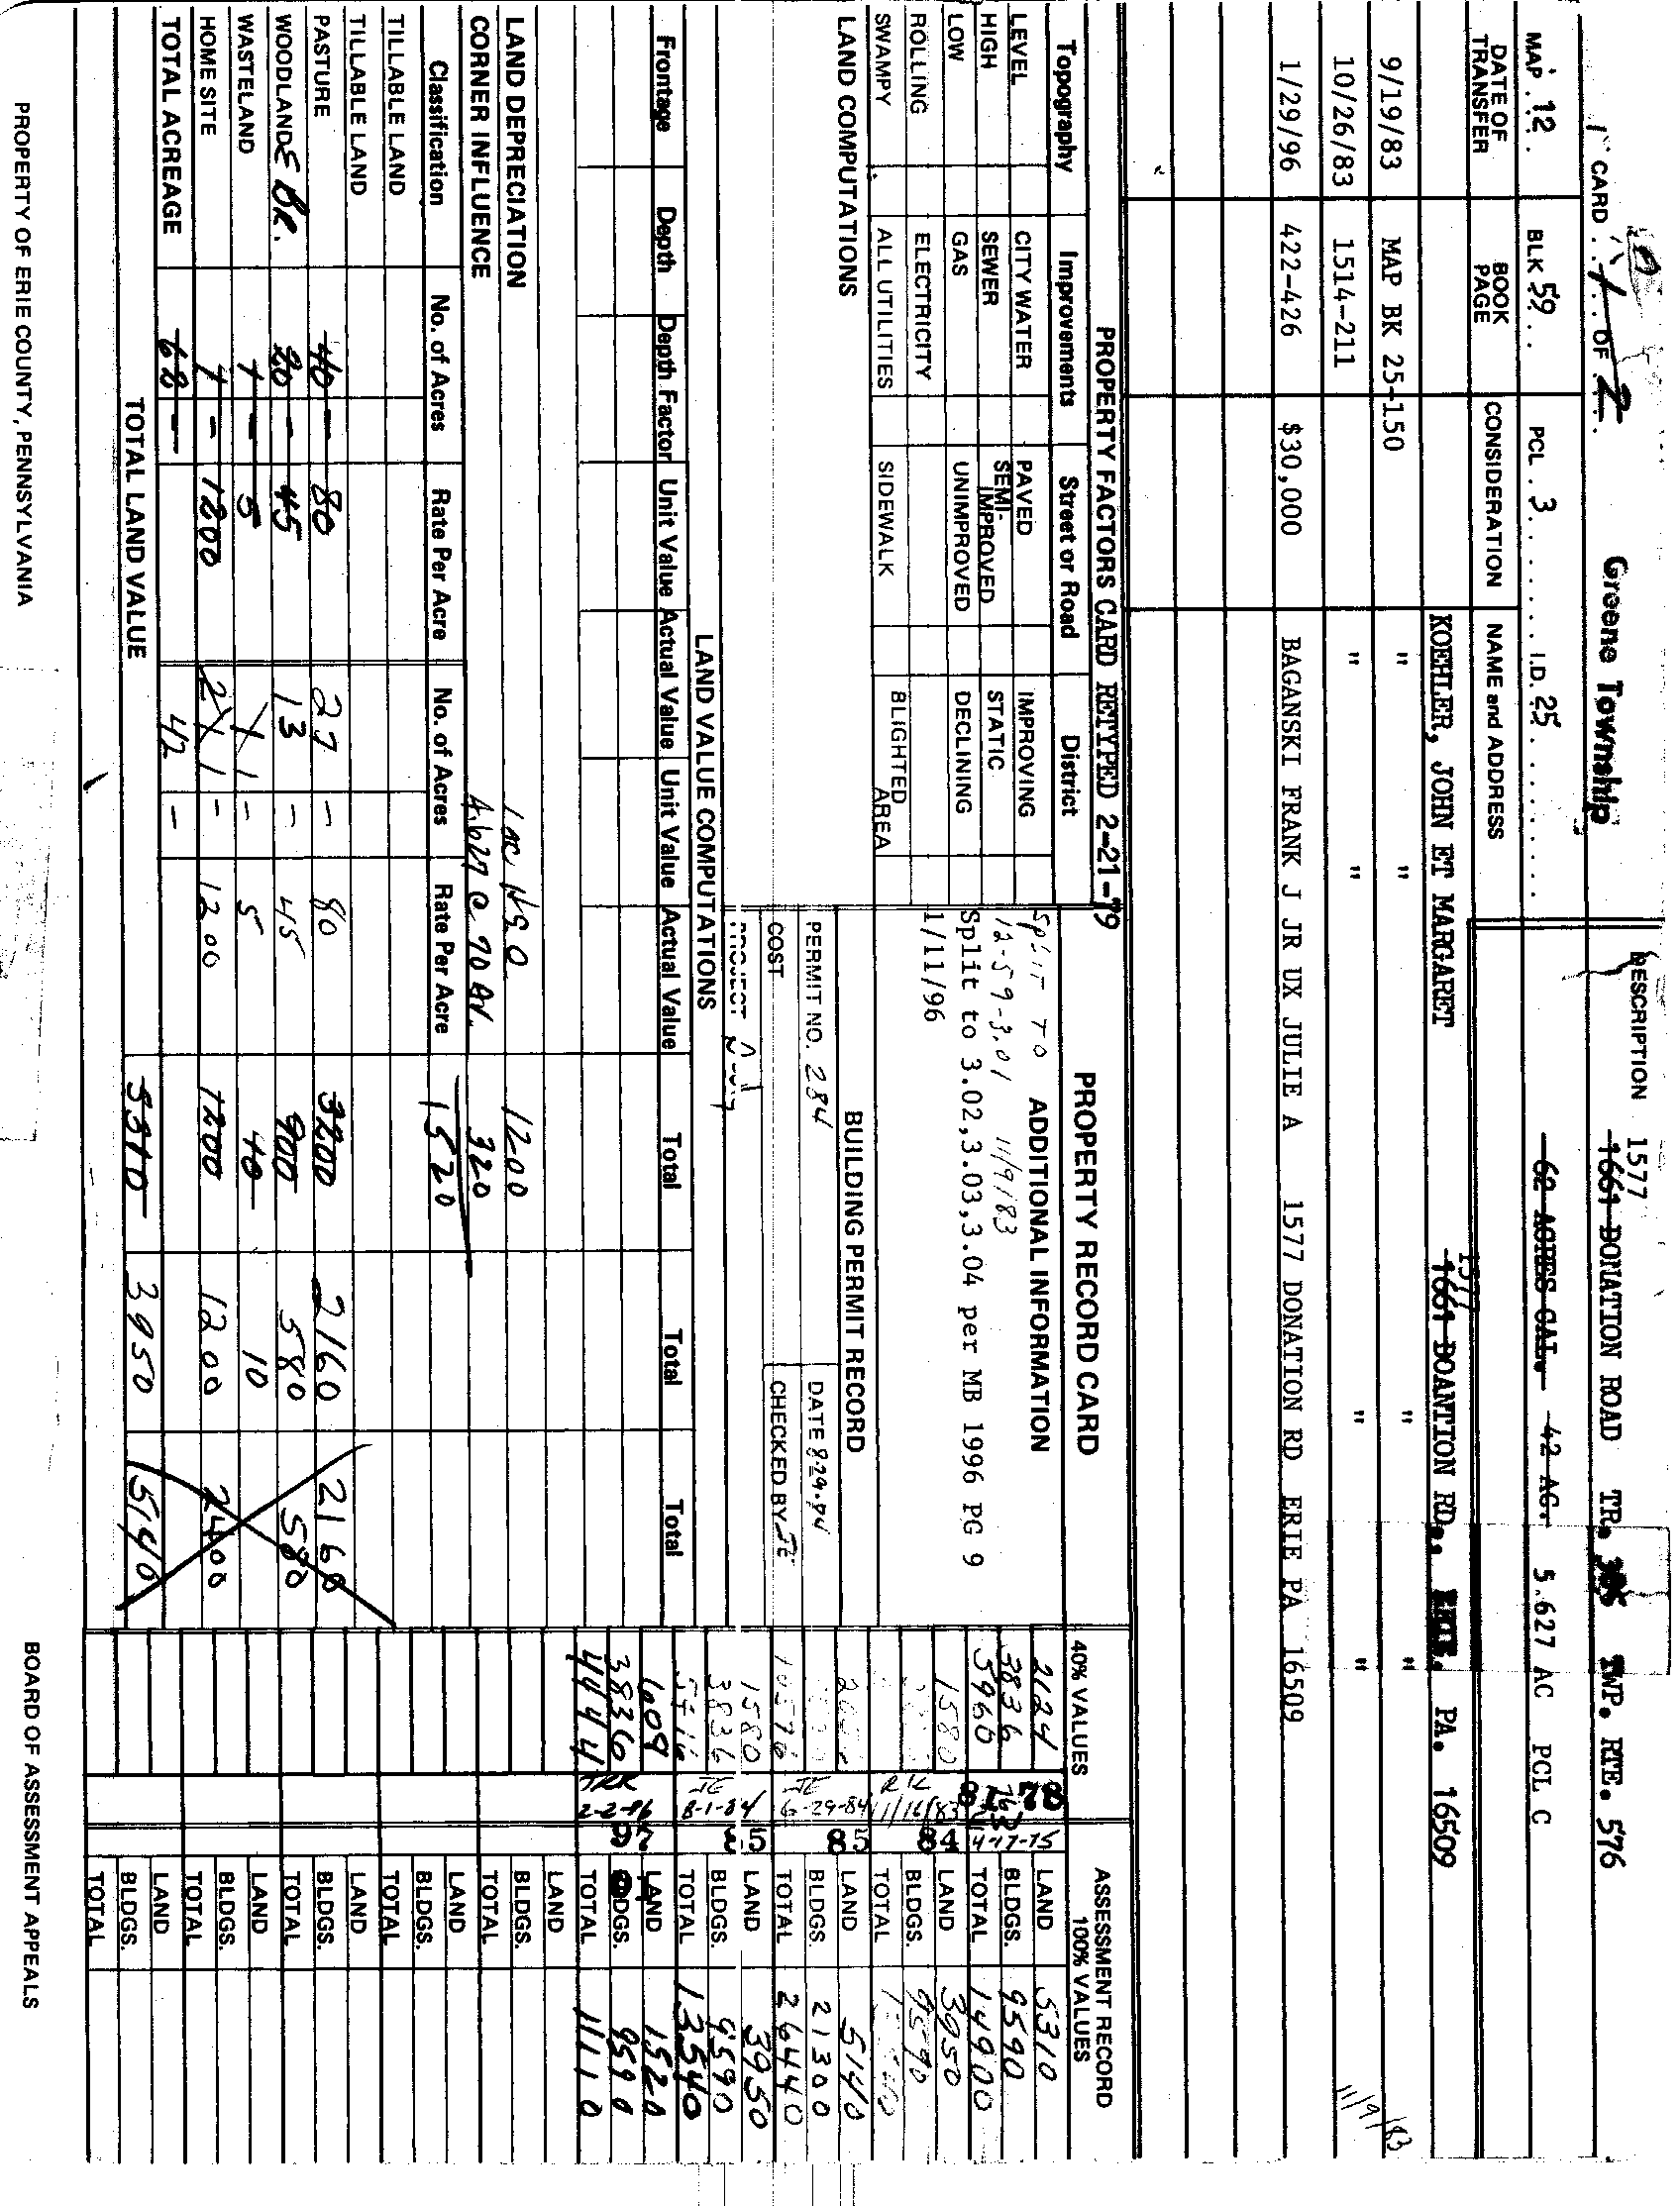 1 CARD 1 OF 2 Greene Township DESCRIPTION 1577
1661 DONATION ROAD TR. TWP. RTE. 576
MAP 12 BLK 59 PCL 3 I.D. 25
62 ACRES CAL. 42 AC. 5.627 AC PCL C
DATE OF TRANSFER BOOK PAGE CONSIDERATION NAME and ADDRESS
KOEHLER, JOHN ET MARGARET 1577 1661 DOANTION RD., PA. 16509
9/19/83 MAP BK 25-150 " " " " 11/9/83
10/26/83 1514-211 " " " "
1/29/96 422-426 $30,000 BAGANSKI FRANK J JR UX JULIE A 1577 DONATION RD ERIE PA 16509
PROPERTY FACTORS CARD RETYPED 2-21-79
Topography Improvements Street or Road District
LEVEL CITY WATER PAVED IMPROVING
HIGH SEWER SEMI-IMPROVED STATIC
LOW GAS UNIMPROVED DECLINING
ROLLING ELECTRICITY
SWAMPY ALL UTILITIES SIDEWALK BLIGHTED AREA
LAND COMPUTATIONS
PROPERTY RECORD CARD
ADDITIONAL INFORMATION
Split TO
12-59-3.01 11/9/83
Split to 3.02,3.03,3.04 per MB 1996 PG 9
1/11/96
BUILDING PERMIT RECORD
PERMIT NO. 284 DATE 8-29-84
COST CHECKED BY JE
PROJECT
LAND VALUE COMPUTATIONS
Frontage Depth Depth Factor Unit Value Actual Value Unit Value Actual Value Total Total Total
LAND DEPRECIATION 1200
CORNER INFLUENCE 4.627 @ 70 AV. 320
Classification No. of Acres Rate Per Acre No. of Acres Rate Per Acre 1520
TILLABLE LAND
TILLABLE LAND
PASTURE 40 - 80 27 - 80 3200 2160 2160
WOODLAND & BR. 20 - 45 13 - 45 900 580 580
WASTELAND 1 - 5 1 - 5 10 10
HOME SITE 1 - 1200 2 1 - 1200 1200 1200 2400
TOTAL ACREAGE 62 - 42 -
TOTAL LAND VALUE 5310 3950 5140
40% VALUES ASSESSMENT RECORD 100% VALUES
2124 78 LAND 5310
3836 BLDGS. 9590
5960 4-17-75 TOTAL 14900
1580 RK 11/16/83 84 LAND 3950
BLDGS. 9590
TOTAL
JE 6-29-84 85 LAND 5140
BLDGS. 21300
10576 TOTAL 26440
1580 JE 8-1-84 LAND 3950
3836 BLDGS. 9590
TOTAL 13540
609 LAND 1520
3836 BLDGS. 9590
4444 2-2-96 TOTAL 11110
LAND
BLDGS.
TOTAL
LAND
BLDGS.
TOTAL
LAND
BLDGS.
TOTAL
LAND
BLDGS.
TOTAL
LAND
BLDGS.
TOTAL
PROPERTY OF ERIE COUNTY, PENNSYLVANIA BOARD OF ASSESSMENT APPEALS